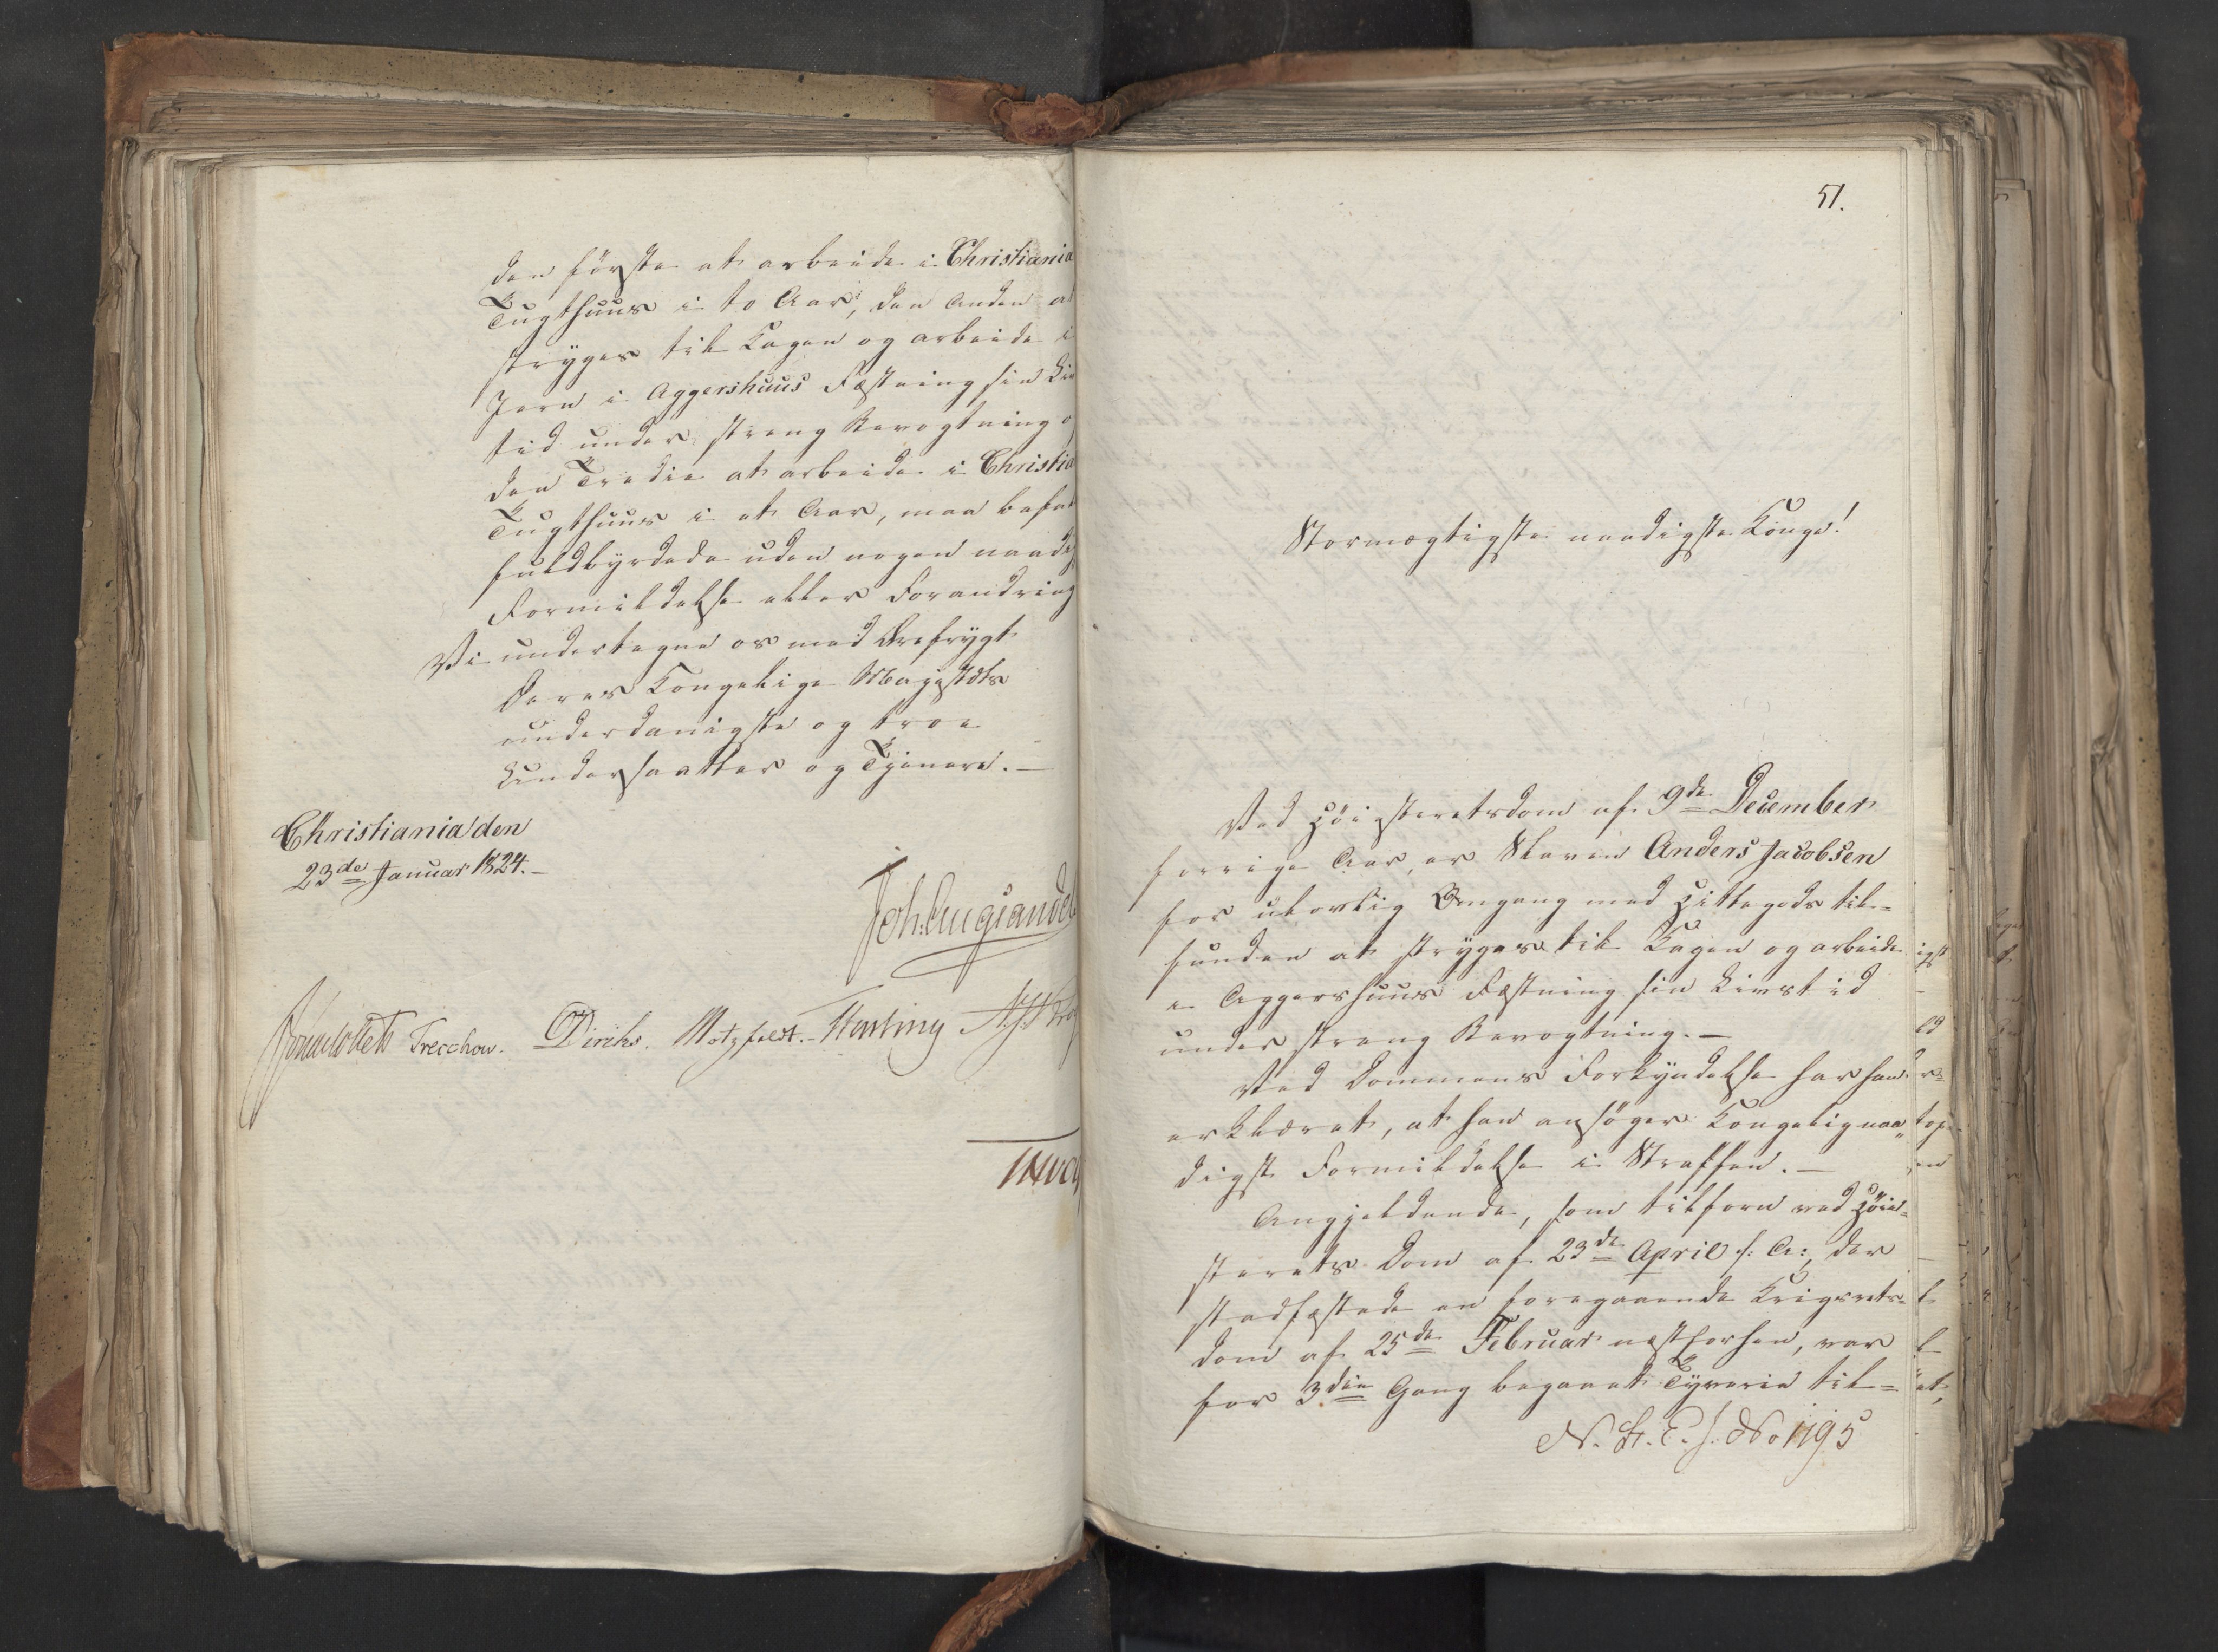 den første at arbeide i Christiania
Tugthuus i to Aar, den Anden at
stryges til Kagen og arbeide i
Jern i Aggershuus Fæstning sin Liv
tid under streng Bevogtning o
den Tredie at arbeide i Christia
Tugthuus i et Aar, maa befa
fuldbyrdede uden nogen naadig
Formildelse eller Forandring
Vi undertegne os med Ærefrygt
Deres Kongelige Majestæts
underdanigste og troe
Undersaatter og Tjenere.
Christiania den
23de Januar 1824.
Joh. Aug Sandel
Sommerhielm Treschow. Diriks. Motzfeldt. Fasting
51.
Stormægtigste naadigste Konge!
Ved Høiesteretsdom af 9de December
forrige Aar, er Slaven Anders Jacobsen
for ulovlig Omgang med Hittegods til-
funden at stryges til Kagen og arbeide
i Aggershuus Fæstning sin Livstid
under streng Bevogtning. -
Ved Dommens Forkyndelse har han
erklæret, at han ansøger Kongelig naa-
digst Formildelse i Straffen. -
Angjeldende, som tilforn ved Høie-
sterets Dom af 23de April f: A:, der
stadfæstede en foregaaende Krigsrets-
dom af 25de Februar næstforhen, var
for 3die Gang begaaet Tyverie til-
No 1195